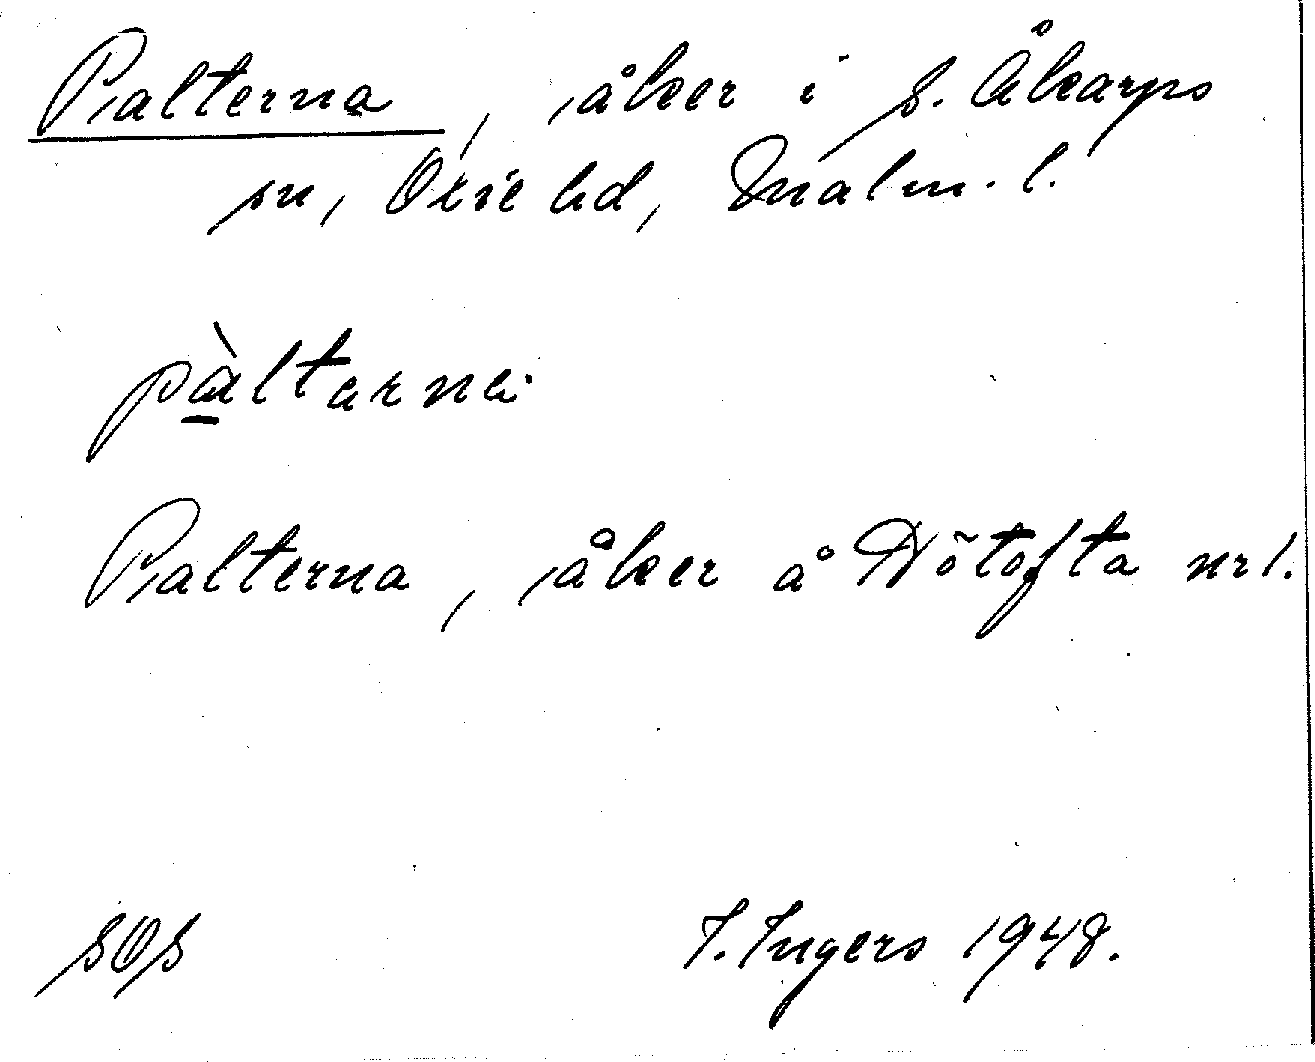 Palterna, åker i S. Åkarps
sn, Oxie hd, Malm. l.
pàltarna
Palterna, åker å Dötofta nr 1.
SOS
I. Ingers 1948.